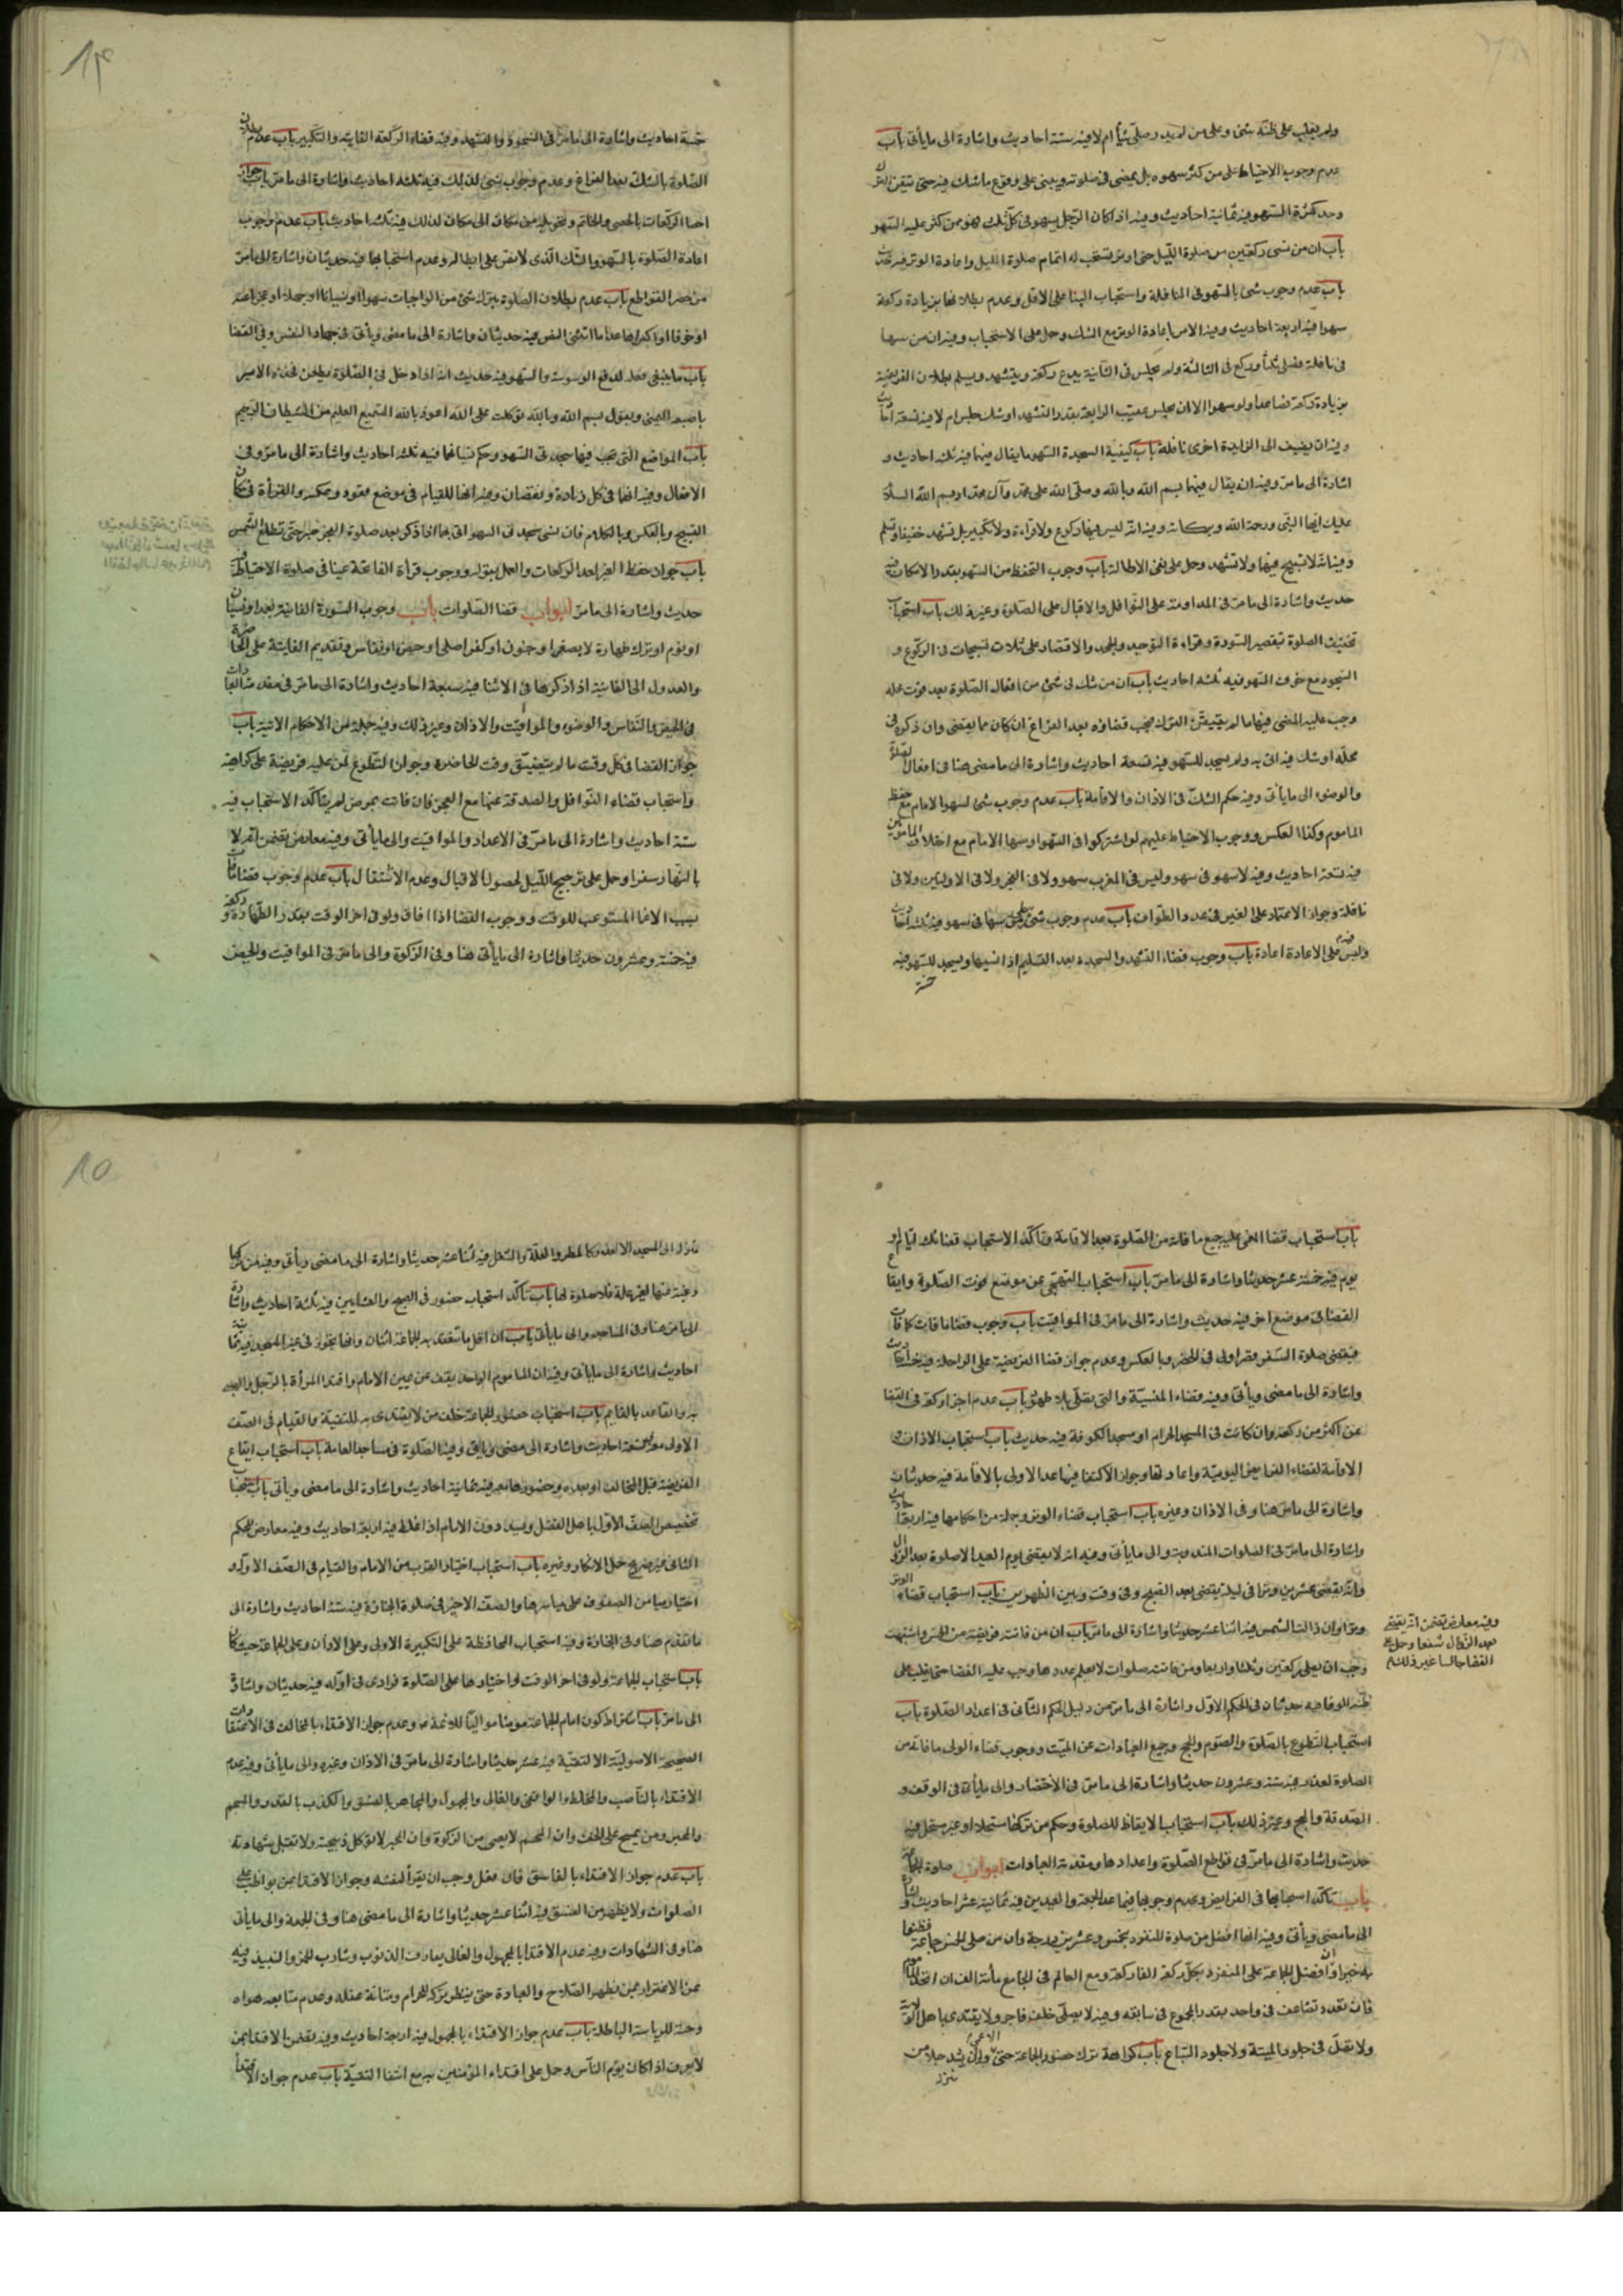 ولم يغلب على ظنه شئ وعلى من لم يدر صلى شيأ ام لا فيه ستة احاديث واشارة الى ما يأتى باب
عدم وجوب الاحتياط على من كثر سهوه بل يمضى فى صلوته ويبنى على وقوع ما شك فيه حتى تيقن الترك
وحد كثرة السهو فيه ثمانية احاديث وفيه اذا كان الرجل يسهو فى كل ثلث فهو ممن كثر عليه السهو
باب ان من نسى ركعتين من صلوة الليل حتى اوتر يستحب له اتمام صلوة الليل واعادة الوتر فيه حديث
باب عدم وجوب شئ بالسهو فى النافلة واستحباب البنا على الاقل وعدم بطلانها بزيادة ركعة
سهوا فيه اربعة احاديث وفيه الامر باعادة الوتر مع الشك وحمل على الاستحباب وفيه ان من سها
فى نافلة فصلى ثلثا وركع فى الثالثة ولم يجلس فى الثانية يدع ركعة ويتشهد ويسلم بطلان الفريضة
بزيادة ركعة فصاعدا ولو سهوا الا ان يجلس عقيب الرابعة بقدر التشهد او شك جلس ام لا فيه تسعة احاديث
وفيه ان يضيف الى الزايدة اخرى نافلة باب كيفية السجدة السهو ما يقال فيهما فيه ثلثه احاديث و
اشارة الى ما مر وفيه ان يقال فيهما بسم الله وبالله وصلى الله على محمد وآل محمد او بسم الله السلام
عليك ايها النبى ورحمة الله وبركاته وفيه انه ليس فيها ركوع ولا قراءة ولا تكبير بل تشهد خفيفا وتسلم
وفيه انه لا تسبيح فيها ولا تشهد وحمل على نفى الاطالة باب وجوب التحفظ من السهو بقدر الامكان فيه
حديث واشارة الى ما مر فى المداومة على النوافل والاقبال على الصلوة وغير ذلك باب استحباب
تخفيف الصلوة بقصير السورة وقراءة التوحيد والجحد والاقتصاد على ثلاث تسبيحات فى الركوع و
السجود مع خوف السهو فيه ثلثه احاديث باب ان من شك فى شئ من افعال الصلوة بعد فوت محله
وجب عليه المضى فيها ما لم يتيقن الترك فيجب قضاؤه بعد الفراغ ان كان مما يقضى وان ذكره فى
محله او شك فيه اتى به ولم يسجد للسهو فيه تسعة احاديث واشارة الى ما مضى هنا فى افعال الصلوة
والوضوء الى ما يأتى وفيه حكم الشك فى الاذان والاقامة باب عدم وجوب شئ لسهو الامام مع حفظ
الماموم وكذا العكس ووجوب الاحتياط عليهم لو اشتركوا فى السهو او سها الامام مع اختلاف المامومين
فيه تسعة احاديث وفيه لا سهو فى سهو وليس فى المغرب سهو ولا فى الفجر ولا فى الاوليين ولا فى
نافلة وجواز الاعتماد على الغير فى عدد الطواف باب عدم وجوب شئ على من سها فى سهو فيه ثلثه احاديث
وفيه وليس على الاعادة اعادة باب وجوب قضاء التشهد والسجدة بعد التسليم اذا نسيها ويسجد للسهو فيه
خمسة
خمسة احاديث واشارة الى ما مر فى السجود والتشهد وفيه قضاء الركعة الفايتة والتكبير باب عدم بطلان
الصلوة بالشك بعد الفراغ وعدم وجوب شئ لذلك فيه ثلثه احاديث واشارة الى ما مر باب جواز
احصا الركعات بالحصى والخاتم وتحويله من مكان الى مكان لذلك فيه ثلث احاديث باب عدم وجوب
اعادة الصلوة بالسهو والشك الذى لا نص على ابطاله وعدم استحبابها فيه حديثان واشارة الى ما مر
من حصر القواطع باب عدم بطلان الصلوة بترك شئ من الواجبات سهوا او نسيانا او جهلا او عجزا عنه
او خوفا او اكراها عدا ما استثنى النص فيه حديثان واشارة الى ما مضى ويأتى فى جهاد النفس وفى القضا
باب ما ينبغى فعله لدفع الوسوسة والسهو فيه حديث انه اذا دخل فى الصلوة يطعن فخذه الايسر
باصبعه اليمنى ويقول بسم الله وبالله توكلت على الله اعوذ بالله السميع العليم من الشيطان الرجيم
باب المواضع التى تجب فيها سجدتى السهو وحكم نسيانها فيه ثلثه احاديث واشارة الى ما مر وفى
الافعال وفيه انها فى كل زيادة ونقصان وفيه انها للقيام فى موضع قعود وعكسه والقرأة فى مكان
التسبيح وبالعكس وبالكلام فان نسى سجدتى السهو اتى بها اذا ذكر بعد صلوة الفجر حتى تطلع الشمس
باب جواز حفظ الغير لعدد الركعات والعمل بقوله ووجوب قرأة الفاتحة عينا فى صلوة الاحتياط فيه
حديث واشارة الى ما مر ابواب قضا الصلوات باب وجوب السورة الفايتة بعمد او نسيان
او نوم او بترك طهارة لا بصغر او جنون او كفر اصلى او حيض او نفاس وتقديم الفايتة على الحاضرة
والعدول الى الفايتة اذا ذكرها فى الاثنا فيه سبعة احاديث واشارة الى ما مر فى مقدمة العبادات
فى الحيض والنفاس والوضوء والمواقيت والاذان وغير ذلك وفيه جملة من الاحكام الاتية باب
جواز القضا فى كل وقت ما لم يتضيق وقت الحاضرة وجواز التطوع لمن عليه فريضة على كراهية
واستحباب قضاء النوافل والصدقة عنها مع العجز فان فاتت بمرض لم يتأكد الاستحباب فيه
ستة احاديث واشارة الى ما مر فى الاعداد والمواقيت والى ما يأتى وفيه معارض تضمن انه لا
بالنهار سفرا وحمل على ترجيح الليل لحصول الاقبال وعدم الاشتغال باب عدم وجوب قضا ما فات
بسبب الاغما المستوعب للوقت ووجوب القضا اذا افاق ولو فى اخر الوقت بقدر الطهارة وركعة
فيه خمسة وعشرون حديثا واشارة الى ما يأتى هنا وفى الزكوة والى ما مر فى المواقيت والحيض
باب استحباب قضا المغمى عليه جميع ما فاته من الصلوة بعد الافاقة وتأكد الاستحباب قضا ثلث ايام او
يوم فيه خمسة عشر حديثا واشارة الى ما مر باب استحباب التنحى عن موضع فوت الصلوة وايقاع
القضا فى موضع اخر فيه حديث واشارة الى ما مر فى المواقيت باب وجوب قضا ما فات كما فات
فيقضى صلوة السفر قصرا ولو فى الحضر وبالعكس وعدم جواز قضا الفريضة على الراحلة فيه خمسة احاديث
واشارة الى ما مضى ويأتى وفيه قضاء المنسية والتى بصلى بلا طهور باب عدم اجزا ركعة فى القضا
عن اكثر من ركعة وان كانت فى المسجد الحرام او مسجد الكوفة فيه حديث باب استحباب الاذان و
الاقامة لقضاء الفرايض اليومية واعادتها وجواز الاكتفا فيما عدا الاولى بالاقامة فيه حديثان
واشارة الى ما مر هنا وفى الاذان وغيره باب استحباب قضاء الوتر وجملة من احكامها فيه اربعة احاديث
واشارة الى ما مر فى الصلوات المندوبة والى ما يأتى وفيه انه لا يقضى يوم العيد الا صلوة بعد الزوال
وانه يقضى عشرين وترا فى ليلة يقضى بعد الصبح وفى وقت وبين الظهرين باب استحباب قضاء الوتر
وترا وان زالت الشمس فيه اثنا عشر حديثا واشارة الى ما مر باب ان من فاتته فريضة من الخمس واشتبهت
وفيه معارض تضمن انه يقضى
بعد الزوال شفعا وحمل على
القضا جالسا غير ذلك
وجب ان يصلى ركعتين وثلثا واربعا ومن فاتته صلوات لا يعلم عددها وجب عليه القضا حتى يغلب على
ظنه الوفا فيه حديثان فى الحكم الاول واشارة الى ما مر من دليل الحكم الثانى فى اعداد الصلوة باب
استحباب التطوع بالصلوة والصوم والحج وجميع العبادات عن الميت ووجوب قضاء الولى ما فاته من
الصلوة لعذر فيه ستة وعشرون حديثا واشارة الى ما مر فى الاحتضار والى ما يأتى فى الوقف و
الصدقة والحج وغير ذلك باب استحباب الايقاظ للصلوة وحكم من تركها مستحلا او غير مستحل فيه
حديث واشارة الى ما مر فى قواطع الصلوة واعدادها ومقدمة العبادات ابواب صلوة الجماعة
باب تأكد استحبابها فى الفرايض وعدم وجوبها فيما عدا الجمعة والعيدين فيه ثمانية عشر احاديث واشارة
الى ما مضى ويأتى وفيه انها افضل من صلوة المنفرد بخمس وعشرين درجة وان من صلى الخمس جماعة فظنوا
به خيرا وان افضل الجماعة على المنفرد بكل ركعة الفا ركعة ومع العالم فى الجامع مأتة الف ان اتحد الماموم
فان تعدد تضاعف فى واحد بقدر المجموع فى سابقه وفيه لا يصلى خلف فاجر ولا يقتدى باهل الولاية
ولا تصل فى جلود الميتة ولا جلود السباع باب كراهة ترك حضور الجماعة حتى الاعمى ولو ان يشد حبلا من
منزله
منزله الى المسجد الا لعذر كالمطر والعلة والشغل فيه اثنا عشر حديثا واشارة الى ما مضى ويأتى وفيه من تركها
رغبة عنها لغير علة فلا صلوة لها باب تأكد استحباب حضور فى الصبح والعشايين فيه ثلثة احاديث واشارة
الى ما مر هنا وفى المساجد والى ما يأتى باب ان اقل ما تنعقد به الجماعة اثنان وانها تجوز فى غير المسجد فيه ثمانية
احاديث واشارة الى ما يأتى وفيه ان الماموم الواحد يقف عن يمين الامام واقتدا المرأة بالرجل والصبى
به والقاعد بالقايم باب استحباب حضور الجماعة خلف من لا يقتدى به للتقية والقيام فى الصف
الاول معهم تسعة احاديث واشارة الى مضى ويأتى وفيه الصلوة فى مساجد العامة باب استحباب ايقاع
الفريضة قبل المخالف او بعده وحضورها معه فيه ثمانية احاديث واشارة الى ما مضى ويأتى باب استحباب
تخصيص الصف الاول باهل الفضل وتسديد الامام اذا غلط فيه اربعة احاديث وفيه معارض للحكم
الثانى غير صريح حمل الانكار وغيره باب استحباب اختيار القرب من الامام والقيام فى الصف الاول و
اختيار ميامن الصفوف على مياسرها والصف الاخير فى صلوة الجنازة فيه ستة احاديث واشارة الى
ما تقدم هنا وفى الجنازة وفيه استحباب المحافظة على التكبيرة الاولى وعلى الاذان وعلى الجماعة حيث كان
باب استحباب الجماعة ولو فى اخر الوقت واختيارها على الصلوة فرادى فى اوله فيه حديثان واشارة
الى ما مر باب اشتراط كون امام الجماعة مومنا مواليا للائمة ع وعدم جواز الاقتداء بالمخالف فى الاعتقادات
الصحيحة الاصولية الا لتقية فيه عشر حديثا واشارة الى ما مر فى الاذان وغيره والى ما يأتى وفيه عدم
الاقتداء بالناصب والمخلط والواقفى والغالى والمجهول والمجاهر بالفسق والمكذب بالقدر والمجسم
والمجبر ومن يمسح على الخف وان المجسم لا يعطى من الزكوة وان المجبر لا تؤكل ذبيحته ولا تقبل شهادته
باب عدم جواز الاقتداء بالفاسق فان فعل وجب ان يقرأ لنفسه وجواز الاقتدا بمن يواظب على
الصلوات ولا يظهر من الفسق فيه اثنا عشر حديثا واشارة الى ما مضى هنا وفى الجمعة والى ما يأتى
هنا وفى الشهادات وفيه عدم الاقتدا بالمجهول والغالى يعارف الذنوب وشارب الخمر والنبيذ وفيه
عن الاغترار بمن يظهر الصلاح والعبادة حتى ينظر تركه للحرام ومتانة عقله وعدم متابعة هواه
وحبه للرياسة الباطلة باب عدم جواز الاقتداء بالمجهول فيه اربعة احاديث وفيه تضمن الاقتدا بمن
لا يعرف اذا كان يؤم الناس وحمل على اقتداء المؤمنين به مع انتفا التقية باب عدم جواز الاقتدا